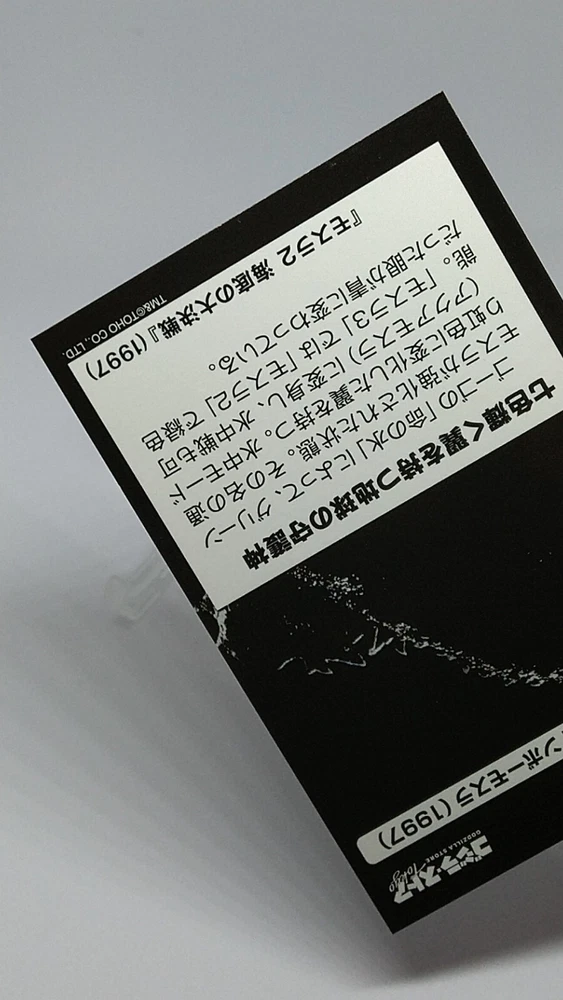 ゴジラ・ストア
Tokyo
GODZILLA STORE
ンボーモスラ (1997)
七色輝く翼を持つ地球の守護神
ゴーゴの「命の水」によって、グリーン
モスラが強化された状態。その名の通
り虹色に変化した翼を持つ。水中モード
(アクアモスラ)に変身し、水中戦も可
能。「モスラ3」では「モスラ2」で緑色
だった眼が青に変わっている。
『モスラ2 海底の大決戦』(1997)
TM&©TOHO CO., LTD.